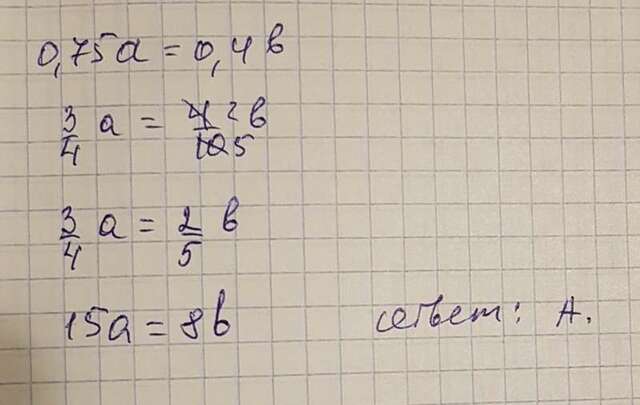 0,75a = 0,4b
3/4 a = 4/10 2/5 b
3/4 a = 2/5 b
15a = 8b
ответ: А.